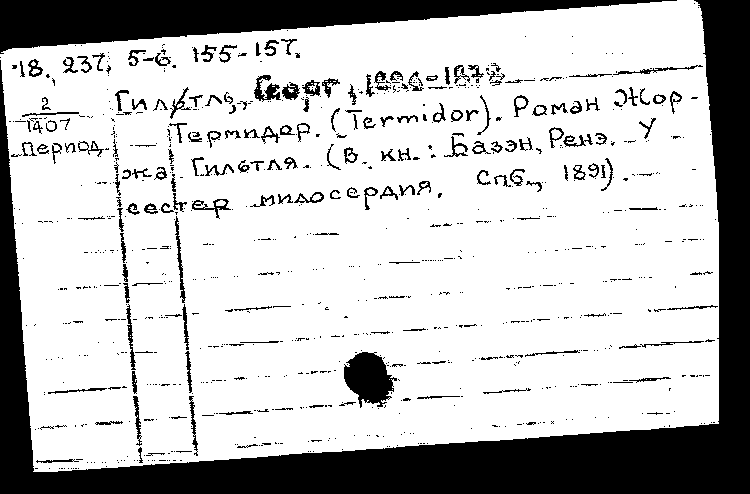 18., 237, 5-6. 155-157.
Гильтль, Георг, 1826-1878
2
1407
Период
Термидор. (Termidor). Роман Жор-
жа Гильтля. (В кн.: Базэн, Ренэ. У
сестер милосердия. Спб., 1891).